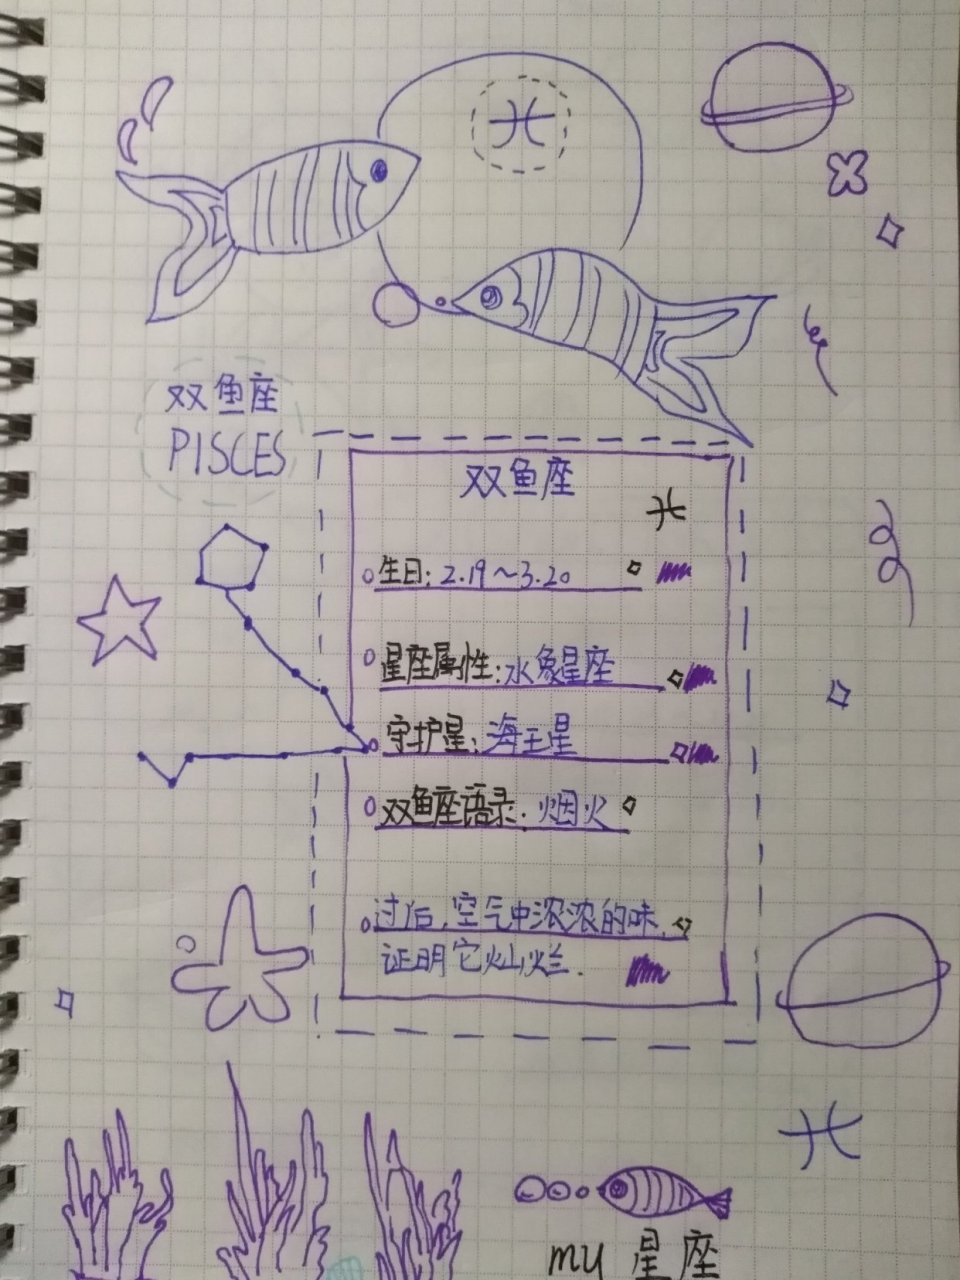 双鱼座
PISCES
双鱼座
生日：2.19～3.20
星座属性：水象星座
守护星：海王星
双鱼座语录：烟火
过后，空气中浓浓的味
证明它灿烂.
my 星座